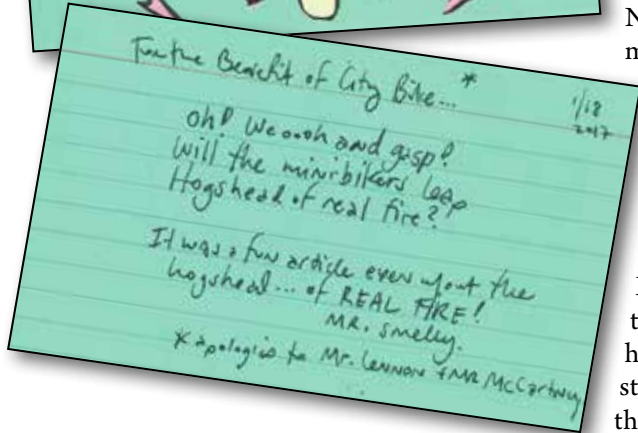 For the Benefit of City Bike... *
1/18
2017
oh! We oooh and gasp!
Will the minibikers leap
Hogshead of real fire?
It was a fun article even w/out the
hogshead... of REAL FIRE!
MR. Smelly.
*apologies to Mr. Lennon + MR McCartney